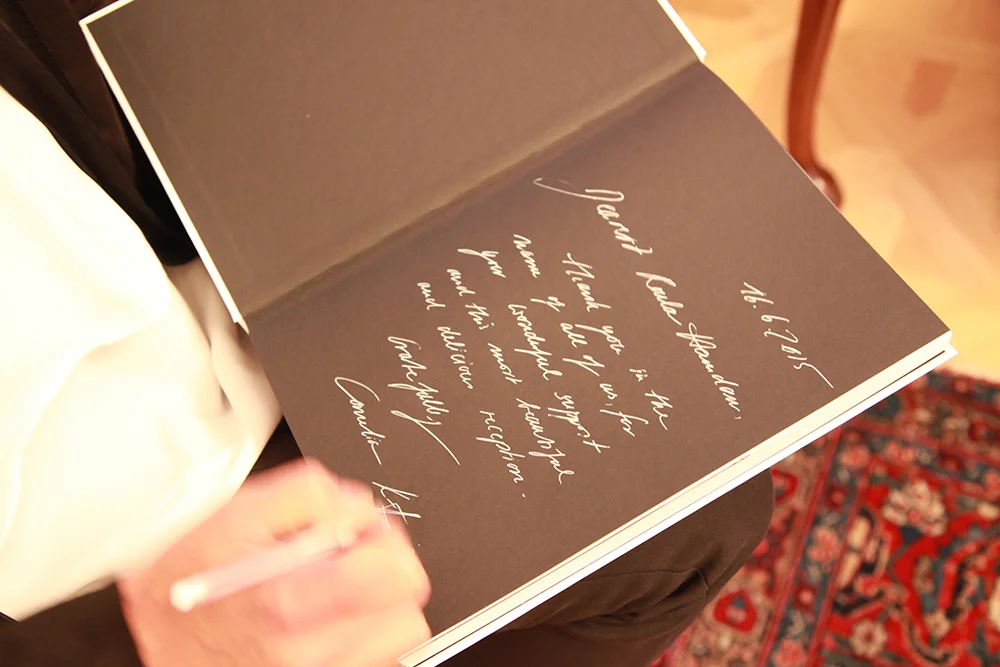 16.6.2015
Jeannot Roula Hamdam,
thank you in the
name of all of us, for
your wonderful support
and this most beautiful
and delicious reception.
Gratefully
Cornelia